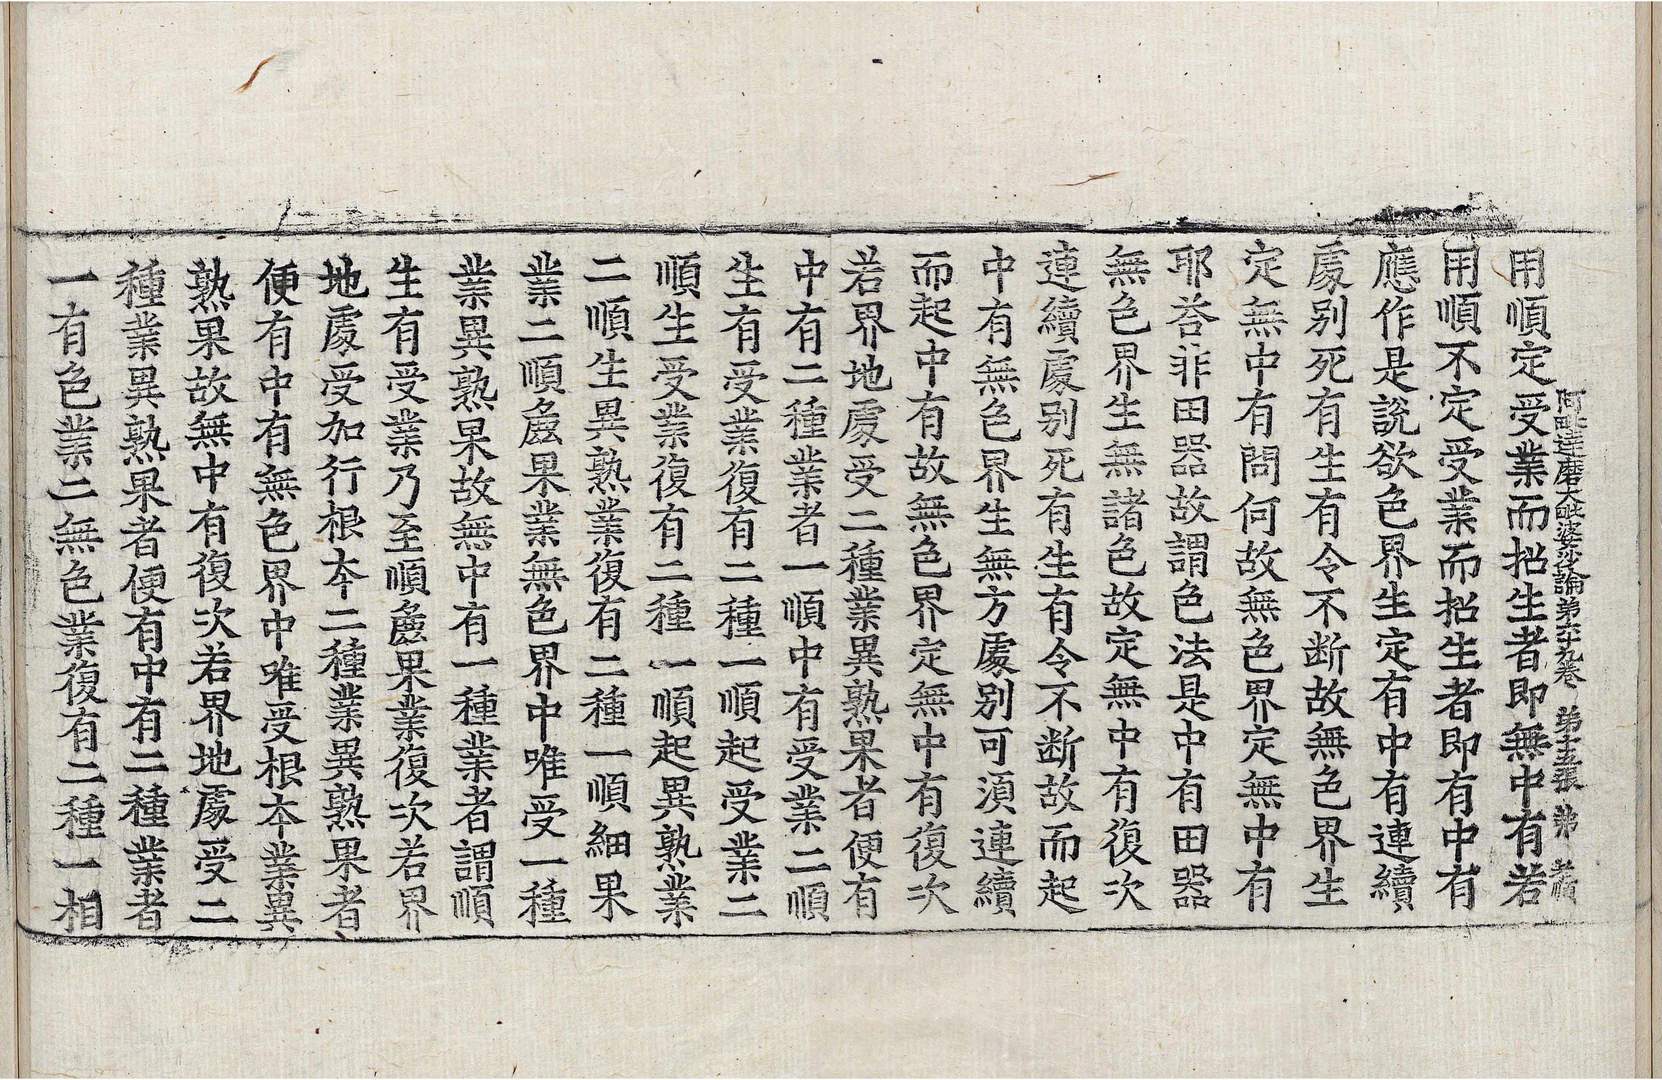 阿毗達磨大毗婆沙論第六十九卷 第十五張 弗
用順定受業而招生者即無中有若
用順不定受業而招生者即有中有
應作是說欲色界生定有中有連續
處别死有生有令不断故無色界生
定無中有問何故無色界定無中有
耶荅非田器故謂色法是中有田器
無色界生無諸色故定無中有復次
連續處别死有生有令不断故而起
中有無色界生無方處别可須連續
而起中有故無色界定無中有復次
若界地處受二種業異熟果者便有
中有二種業者一順中有受業二順
生有受業復有二種一順起受業二
順生受業復有二種一順起異熟業
二順生異熟業復有二種一順細果
業二順麁果業無色界中唯受一種
業異熟果故無中有一種業者謂順
生有受業乃至順麁果業復次若界
地處受加行根本二種業異熟果者
便有中有無色界中唯受根本業異
熟果故無中有復次若界地處受二
種業異熟果者便有中有二種業者
一有色業二無色業復有二種一相